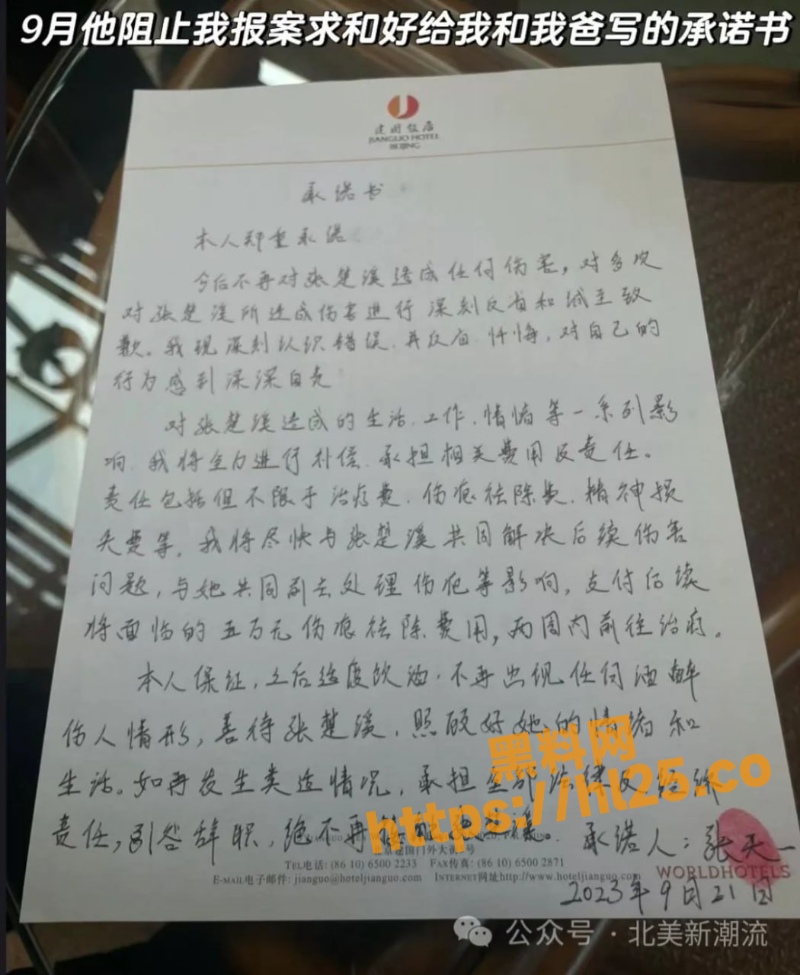 9月他阻止我报案求和好给我和我爸写的承诺书
建国饭店
JIANGUO HOTEL
BEIJING
承诺书
本人郑重承诺
今后不再对张楚溪造成任何伤害，对多次
对张楚溪所造成伤害进行深刻反省和诚至致
歉。我现深刻认识错误，并反省、忏悔，对自己的
行为感到深深自责
对张楚溪造成的生活、工作、情绪等一系列影
响，我将全力进行补偿、承担相关费用及责任。
责任包括但不限于治疗费、伤痕祛除费、精神损
失费等，我将尽快与张楚溪共同解决后续伤害
问题，与她共同前去处理伤疤等影响，支付后续
将面临的五万元伤痕祛除费用，两周内前往治疗。
本人保证，之后适度饮酒，不再出现任何酒醉
伤人情形，善待张楚溪，照顾好她的情绪和
生活。如再发生类近情况，承担全部法律及经济
责任，引咎辞职，绝不再
承诺人：张天一
建国门外大街
TEL电话: (86 10) 6500 2233 FAX传真: (86 10) 6500 2871
E-MAIL电子邮件: jianguo@hoteljianguo.com INTERNET网址http://www.hoteljianguo.com
WORLDHOTELS
2023年9月21日
黑料网
https://hl25.co
公众号·北美新潮流